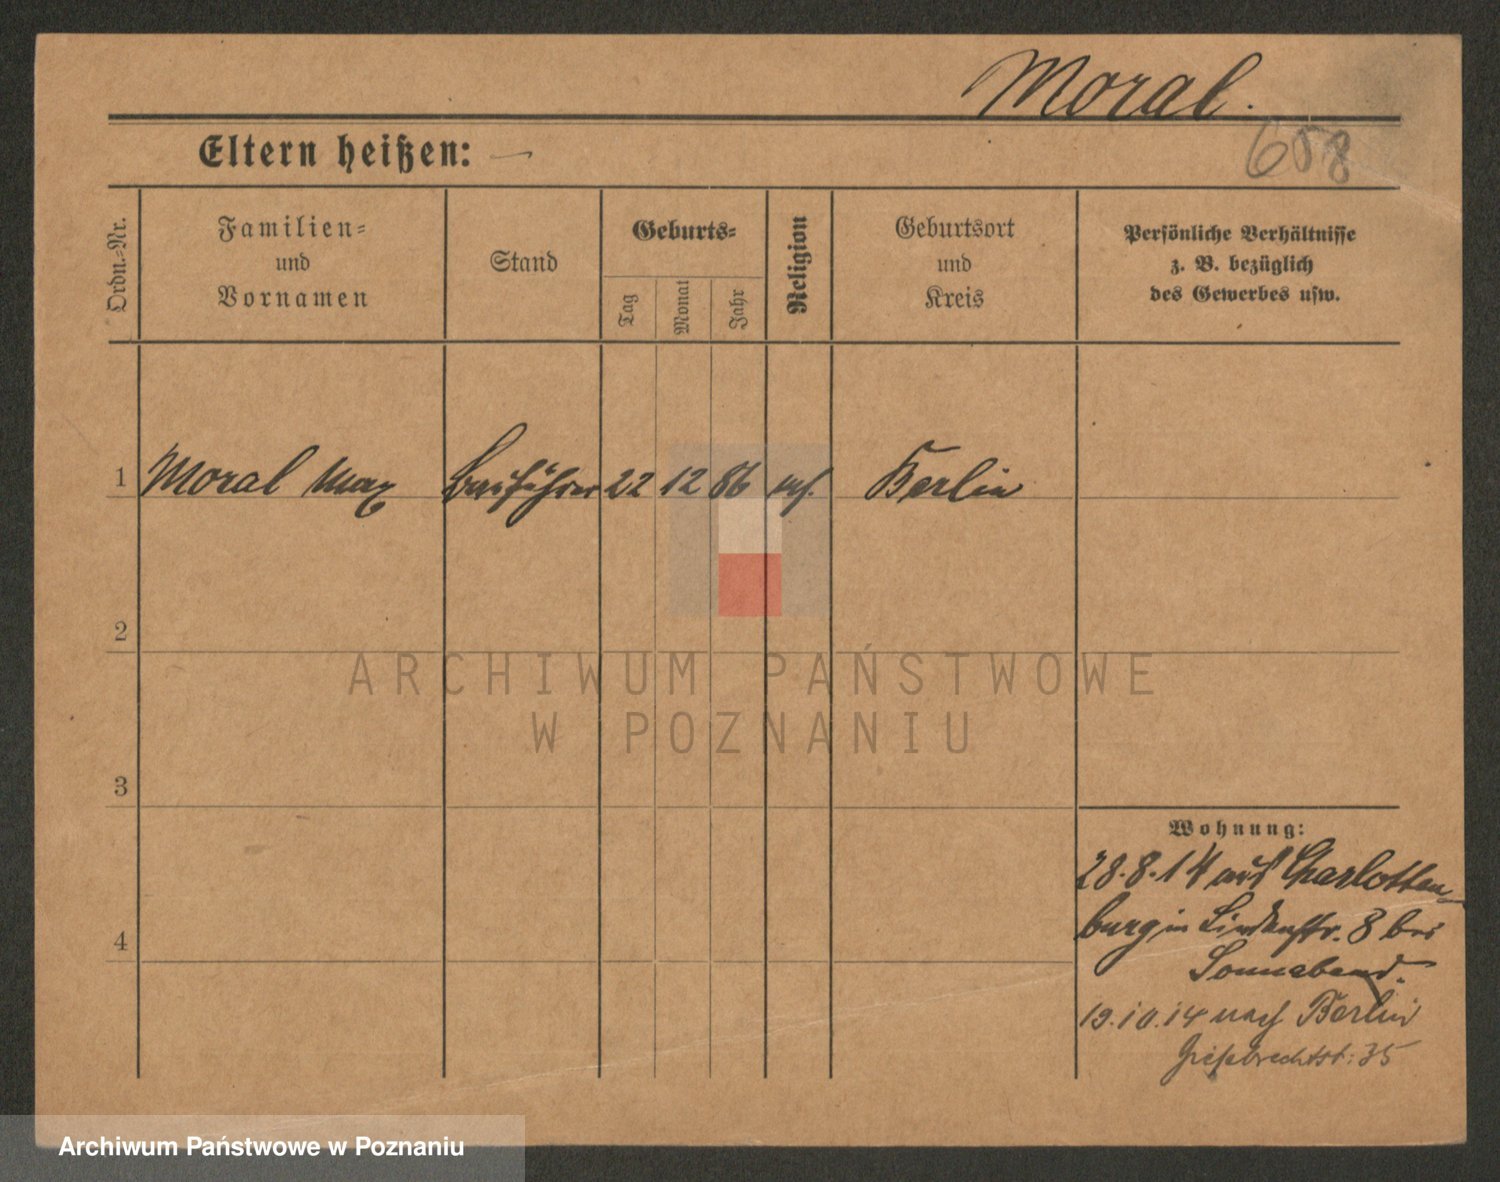 Moral.
658
Eltern heißen: —
Ordn.-Nr.
Familien-
und
Vornamen
Stand
Geburts-
Tag
Monat
Jahr
Religion
Geburtsort
und
Kreis
Persönliche Verhältnisse
z. B. bezüglich
des Gewerbes usw.
1 Moral Max Bauführer 22 12 86 Berlin
2
3
4
Wohnung:
28.8.14 aus Charlotten
burg in Lindenstr. 8 bei
Sonnabend.
19.10.14 nach Berlin
Giesebrechtstr: 35
ARCHIWUM PAŃSTWOWE
W POZNANIU
Archiwum Państwowe w Poznaniu